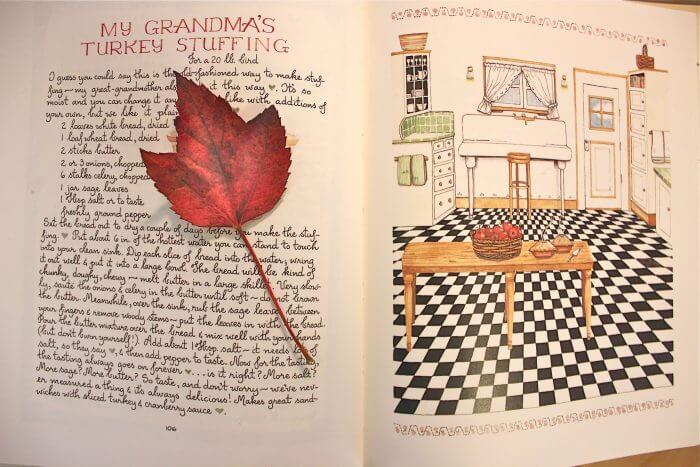 MY GRANDMA'S
TURKEY STUFFING
For a 20 lb. bird
I guess you could say this is the old-fashioned way to make stuf-
fing ~ my great-grandmother als it this way ♥. It's so
moist and you can change it any like with additions of
your own, but we like it plain
2 loaves white bread, dried
1 loaf wheat bread, dried
2 sticks butter
2 or 3 onions, chopped
6 stalks celery, chopped
1 jar sage leaves
1 Tbsp. salt or to taste
freshly ground pepper
Set the bread out to dry a couple of days before you make the stuf-
fing. ♥ Put about 6 in. of the hottest water you can stand to touch
into your clean sink. Dip each slice of bread into the water, wring
it out well & put it into a large bowl. The bread will be kind of
chunky, doughy, chewy ~ melt butter in a large skillet. Very slow-
ly, sauté the onions & celery in the butter until soft ~ do not brown
the butter. Meanwhile, over the sink, rub the sage leaves between
your fingers & remove woody stems ~ put the leaves in with the bread.
Pour the butter mixture over the bread & mix well with your hands
(but don't burn yourself!) Add about 1 Tbsp. salt ~ it needs lots of
salt, so they say ♥, & then add pepper to taste. Now for the tasting,
the tasting always goes on forever ♥. . . . is it right? More salt?
More sage? More butter? So taste, and don't worry ~ we've nev-
er measured a thing & it's always delicious! Makes great sand-
wiches with sliced turkey & cranberry sauce ♥.
106